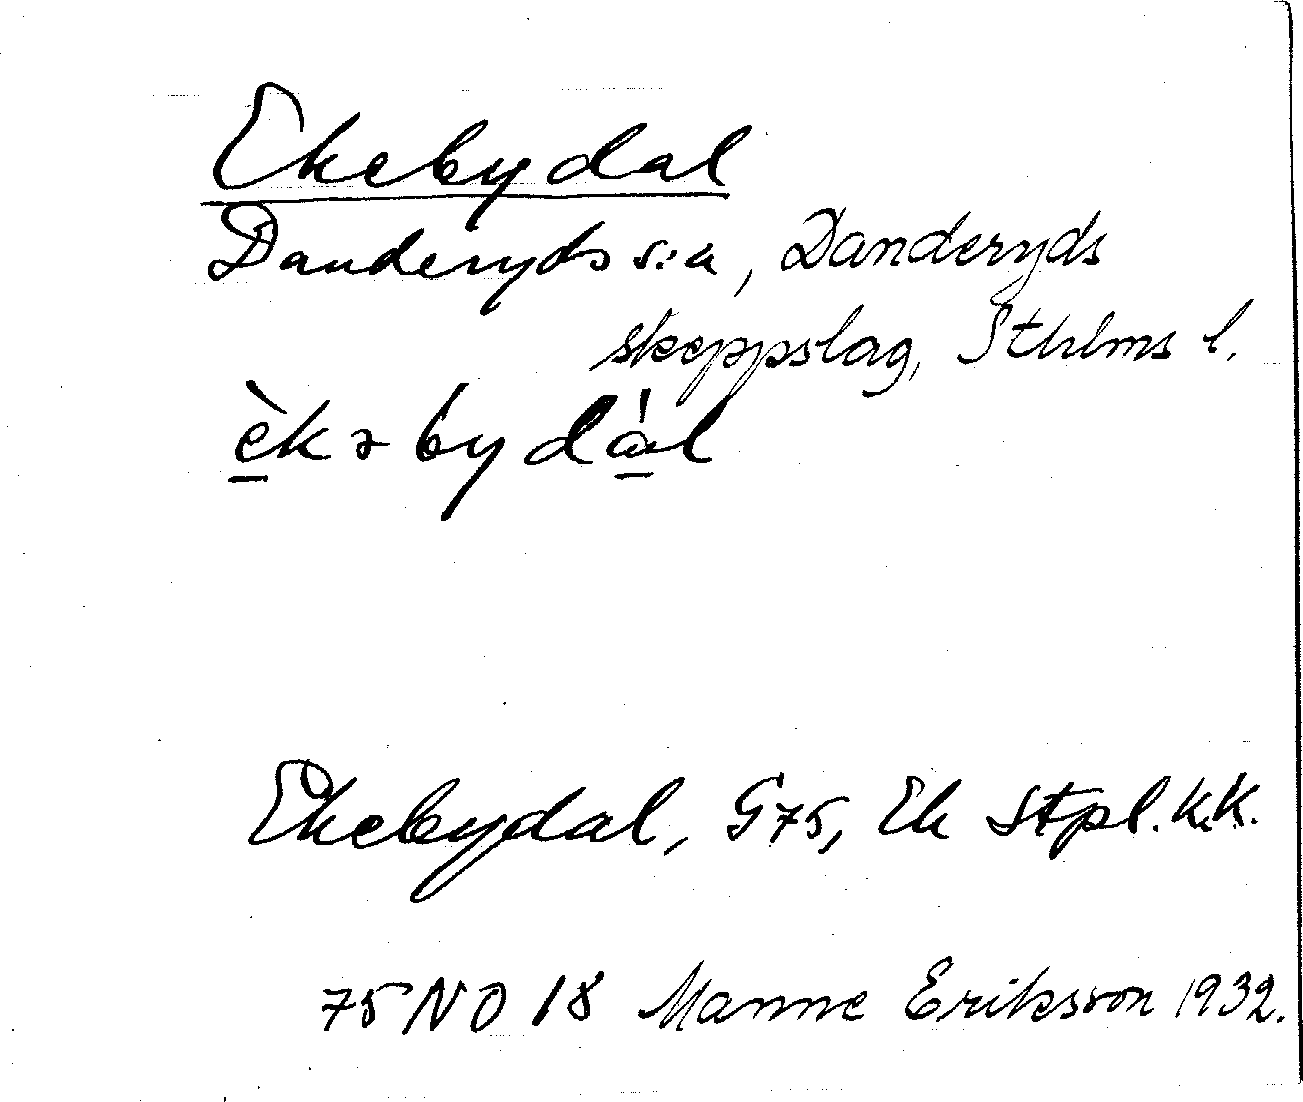 Ekebydal
Danderyds s:a, Danderyds
skeppslag, Sthlms l.
èkəbydál
Ekebydal, G75, Ek Stpl. k.K.
75 NO 18 Manne Eriksson 1932.